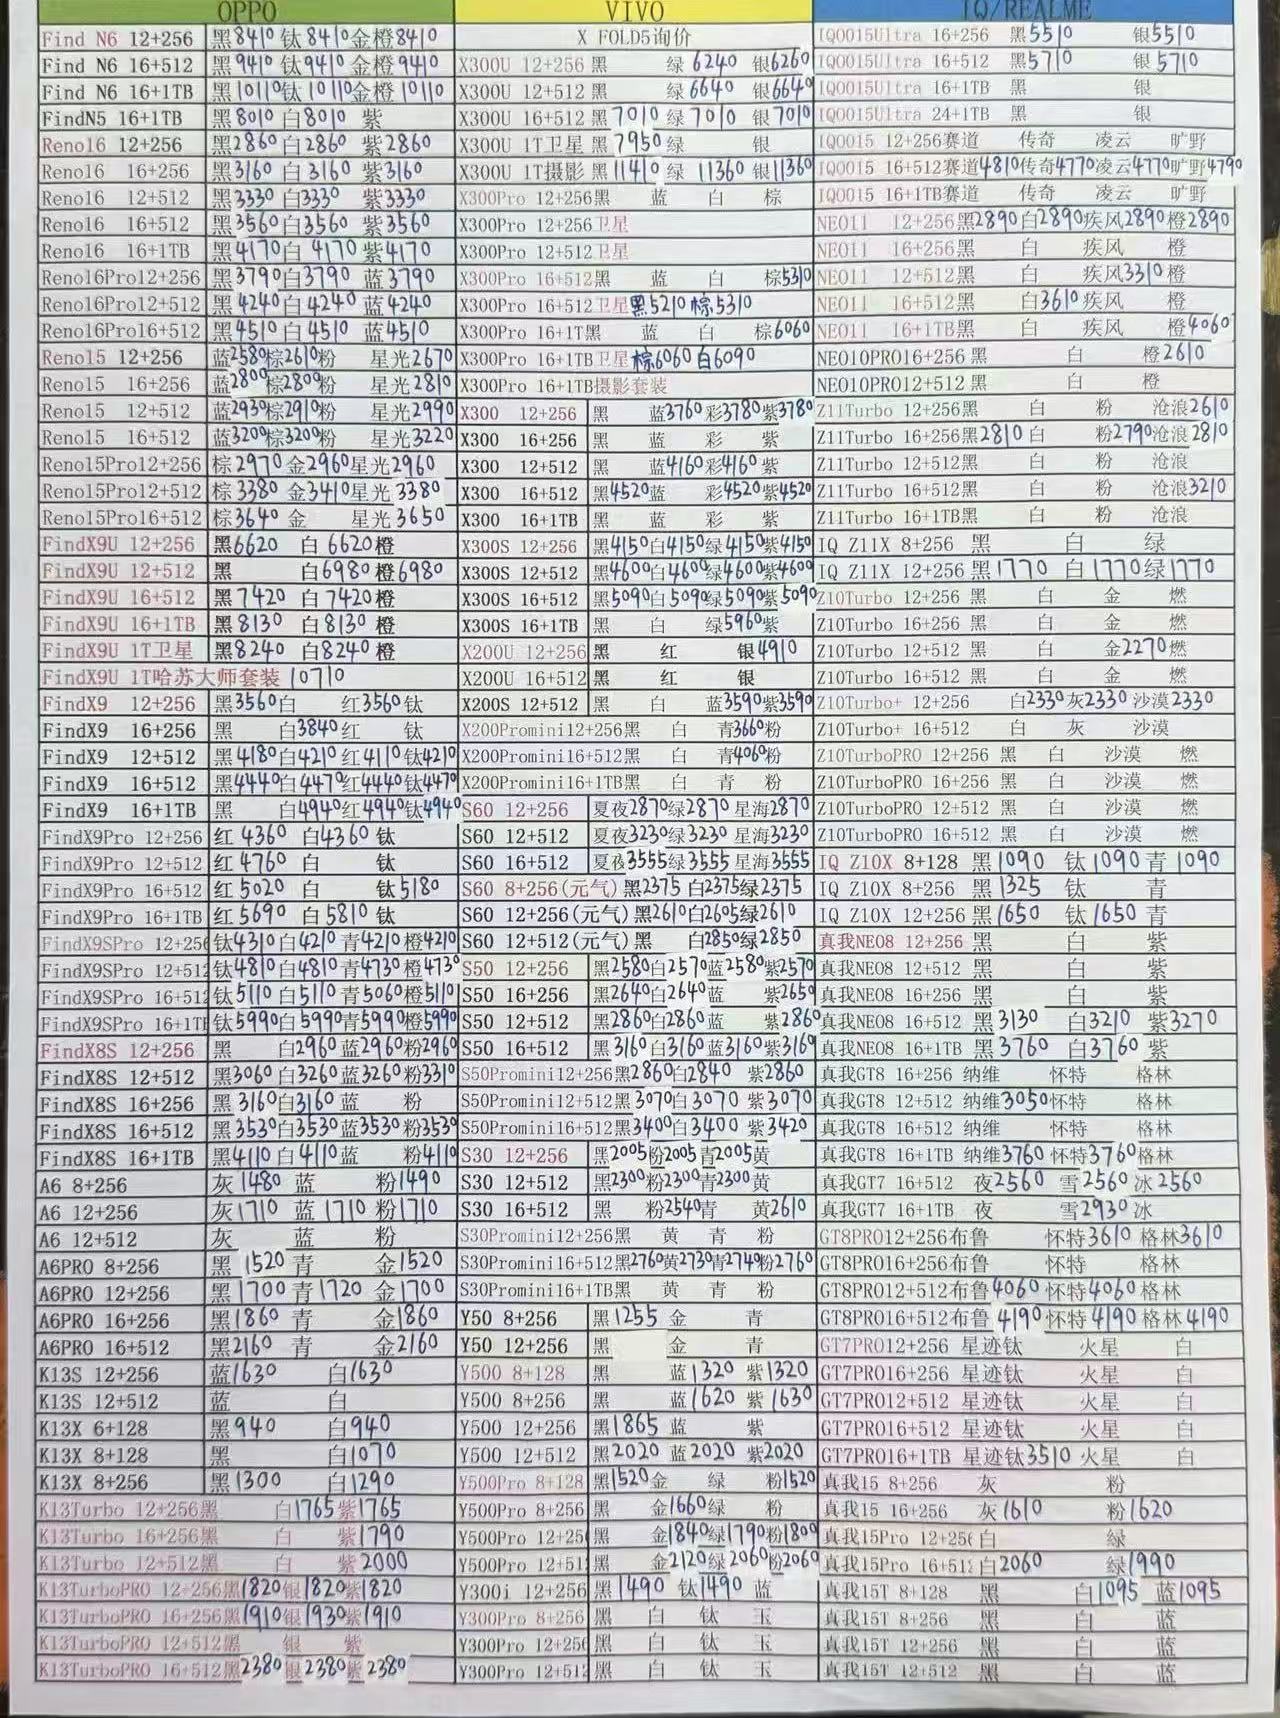 OPPO
Find N6 12+256 黑8410 钛8410金橙8410
Find N6 16+512 黑9410 钛9410 金橙9410
Find N6 16+1TB 黑10110钛10110金橙10110
FindN5 16+1TB 黑8010 白8010 紫
Reno16 12+256 黑2860 白2860 紫2860
Reno16 16+256 黑3160 白3160 紫3160
Reno16 12+512 黑3330 白3330 紫3330
Reno16 16+512 黑3560白3560 紫3560
Reno16 16+1TB 黑4170白4170紫4170
Reno16Pro12+256 黑3790白3790 蓝3790
Reno16Pro12+512 黑4240白4240 蓝4240
Reno16Pro16+512 黑4510白4510 蓝4510
Reno15 12+256 蓝2580棕2610粉 星光2670
Reno15 16+256 蓝2800棕2800粉 星光2810
Reno15 12+512 蓝2930棕2910粉 星光2990
Reno15 16+512 蓝3200棕3200粉 星光3220
Reno15Pro12+256 棕2970金2960星光2960
Reno15Pro12+512 棕3380 金3410星光3380
Reno15Pro16+512 棕3640金 星光3650
FindX9U 12+256 黑6620 白6620橙
FindX9U 12+512 黑 白6980橙6980
FindX9U 16+512 黑7420 白7420橙
FindX9U 16+1TB 黑8130 白8130 橙
FindX9U 1T卫星 黑8240 白8240橙
FindX9U 1T哈苏大师套装 10710
FindX9 12+256 黑3560白 红3560钛
FindX9 16+256 黑 白3840红 钛
FindX9 12+512 黑4180白4210红4110钛4210
FindX9 16+512 黑4440白4470红4440钛4470
FindX9 16+1TB 黑 白4940红4940钛4940
FindX9Pro 12+256 红4360 白4360钛
FindX9Pro 12+512 红4760 白 钛
FindX9Pro 16+512 红5020 白 钛5180
FindX9Pro 16+1TB 红5690 白5810钛
FindX9SPro 12+256 钛4310白4210青4210橙4210
FindX9SPro 12+512 钛4810白4810青4730橙4730
FindX9SPro 16+512 钛5110白5110青5060橙5110
FindX9SPro 16+1TB 钛5990白5990青5990橙5990
FindX8S 12+256 黑 白2960蓝2960粉2960
FindX8S 12+512 黑3060白3260蓝3260粉3310
FindX8S 16+256 黑3160白3160蓝 粉
FindX8S 16+512 黑3530白3530蓝3530粉3530
FindX8S 16+1TB 黑4110白4110蓝 粉4110
A6 8+256 灰1480 蓝 粉1490
A6 12+256 灰1710 蓝1710 粉1710
A6 12+512 灰 蓝 粉
A6PRO 8+256 黑1520青 金1520
A6PRO 12+256 黑1700青1720 金1700
A6PRO 16+256 黑1860 青 金1860
A6PRO 16+512 黑2160 青 金2160
K13S 12+256 蓝1630 白1630
K13S 12+512 蓝 白
K13X 6+128 黑940 白940
K13X 8+128 黑 白1070
K13X 8+256 黑1300 白1290
K13Turbo 12+256黑 白1765紫1765
K13Turbo 16+256黑 白 紫1790
K13Turbo 12+512黑 白 紫2000
K13TurboPRO 12+256黑1820银1820紫1820
K13TurboPRO 16+256黑1910银1930紫1910
K13TurboPRO 12+512黑 银 紫
K13TurboPRO 16+512黑2380银2380紫2380
VIVO
X FOLD5询价
X300U 12+256 黑 绿6240 银6260
X300U 12+512 黑 绿6640 银6640
X300U 16+512 黑7010绿7010 银7010
X300U 1T卫星 黑7950绿 银
X300U 1T摄影 黑11410绿11360银11360
X300Pro 12+256黑 蓝 白 棕
X300Pro 12+256卫星
X300Pro 12+512卫星
X300Pro 16+512黑 蓝 白 棕5310
X300Pro 16+512卫星黑5210棕5310
X300Pro 16+1T黑 蓝 白 棕6060
X300Pro 16+1TB卫星棕6060白6090
X300Pro 16+1TB摄影套装
X300 12+256 黑 蓝3760彩3780紫3780
X300 16+256 黑 蓝 彩 紫
X300 12+512 黑 蓝4160彩4160紫
X300 16+512 黑4520蓝 彩4520紫4520
X300 16+1TB 黑 蓝 彩 紫
X300S 12+256 黑4150白4150绿4150紫4150
X300S 12+512 黑4600白4600绿4600紫4600
X300S 16+512 黑5090白5090绿5090紫5090
X300S 16+1TB 黑 白 绿5960紫
X200U 12+256 黑 红 银4910
X200U 16+512 黑 红 银
X200S 12+512 黑 白 蓝3590紫3590
X200Promini12+256黑 白 青3660粉
X200Promini16+512黑 白 青4060粉
X200Promini16+1TB黑 白 青 粉
S60 12+256 夏夜2870绿2870 星海2870
S60 12+512 夏夜3230绿3230 星海3230
S60 16+512 夏夜3555绿3555 星海3555
S60 8+256(元气) 黑2375 白2375绿2375
S60 12+256(元气) 黑2610白2605绿2610
S60 12+512(元气) 黑 白2850绿2850
S50 12+256 黑2580白2570蓝2580紫2570
S50 16+256 黑2640白2640蓝 紫2650
S50 12+512 黑2860白2860蓝 紫2860
S50 16+512 黑3160白3160蓝3160紫3160
S50Promini12+256黑2860白2840 紫2860
S50Promini12+512黑3070白3070 紫3070
S50Promini16+512黑3400白3400 紫3420
S30 12+256 黑2005粉2005青2005黄
S30 12+512 黑2300粉2300青2300黄
S30 16+512 黑 粉2540青 黄2610
S30Promini12+256黑 黄 青 粉
S30Promini16+512黑2760黄2730青2740粉2760
S30Promini16+1TB黑 黄 青 粉
Y50 8+256 黑1255 金 青
Y50 12+256 黑 金 青
Y500 8+128 黑 蓝1320 紫1320
Y500 8+256 黑 蓝1620 紫1630
Y500 12+256 黑1865 蓝 紫
Y500 12+512 黑2020 蓝2020 紫2020
Y500Pro 8+128 黑1520金 绿 粉1520
Y500Pro 8+256 黑 金1660绿 粉
Y500Pro 12+256 黑 金1840绿1790粉1800
Y500Pro 12+512 黑 金2120绿2060粉2060
Y300i 12+256 黑1490 钛1490 蓝
Y300Pro 8+256 黑 白 钛 玉
Y300Pro 12+256 黑 白 钛 玉
Y300Pro 12+512 黑 白 钛 玉
IQ/REALME
IQOO15Ultra 16+256 黑5510 银5510
IQOO15Ultra 16+512 黑5710 银5710
IQOO15Ultra 16+1TB 黑 银
IQOO15Ultra 24+1TB 黑 银
IQOO15 12+256赛道 传奇 凌云 旷野
IQOO15 16+512赛道4810传奇4770凌云4770旷野4790
IQOO15 16+1TB赛道 传奇 凌云 旷野
NEO11 12+256黑2890白2890疾风2890橙2890
NEO11 16+256黑 白 疾风 橙
NEO11 12+512黑 白 疾风3310橙
NEO11 16+512黑 白3610疾风 橙
NEO11 16+1TB黑 白 疾风 橙4060
NEO10PRO16+256 黑 白 橙2610
NEO10PRO12+512 黑 白 橙
Z11Turbo 12+256黑 白 粉 沧浪2610
Z11Turbo 16+256黑2810白 粉2790沧浪2810
Z11Turbo 12+512黑 白 粉 沧浪
Z11Turbo 16+512黑 白 粉 沧浪3210
Z11Turbo 16+1TB黑 白 粉 沧浪
IQ Z11X 8+256 黑 白 绿
IQ Z11X 12+256 黑1770 白1770绿1770
Z10Turbo 12+256 黑 白 金 燃
Z10Turbo 16+256 黑 白 金 燃
Z10Turbo 12+512 黑 白 金2270燃
Z10Turbo 16+512 黑 白 金 燃
Z10Turbo+ 12+256 白2330灰2330 沙漠2330
Z10Turbo+ 16+512 白 灰 沙漠
Z10TurboPRO 12+256 黑 白 沙漠 燃
Z10TurboPRO 16+256 黑 白 沙漠 燃
Z10TurboPRO 12+512 黑 白 沙漠 燃
Z10TurboPRO 16+512 黑 白 沙漠 燃
IQ Z10X 8+128 黑1090 钛1090 青1090
IQ Z10X 8+256 黑1325 钛 青
IQ Z10X 12+256 黑1650 钛1650 青
真我NEO8 12+256 黑 白 紫
真我NEO8 12+512 黑 白 紫
真我NEO8 16+256 黑 白 紫
真我NEO8 16+512 黑3130 白3210 紫3270
真我NEO8 16+1TB 黑3760 白3760 紫
真我GT8 16+256 纳维 怀特 格林
真我GT8 12+512 纳维3050怀特 格林
真我GT8 16+512 纳维 怀特 格林
真我GT8 16+1TB 纳维3760 怀特3760格林
真我GT7 16+512 夜2560 雪2560冰2560
真我GT7 16+1TB 夜 雪2930冰
GT8PRO12+256布鲁 怀特3610 格林3610
GT8PRO16+256布鲁 怀特 格林
GT8PRO12+512布鲁4060怀特4060格林
GT8PRO16+512布鲁4190怀特4190格林4190
GT7PRO12+256 星迹钛 火星 白
GT7PRO16+256 星迹钛 火星 白
GT7PRO12+512 星迹钛 火星 白
GT7PRO16+512 星迹钛 火星 白
GT7PRO16+1TB 星迹钛3510火星 白
真我15 8+256 灰 粉
真我15 16+256 灰1610 粉1620
真我15Pro 12+256 白 绿
真我15Pro 16+512 白2060 绿1990
真我15T 8+128 黑 白1095 蓝1095
真我15T 8+256 黑 白 蓝
真我15T 12+256 黑 白 蓝
真我15T 12+512 黑 白 蓝